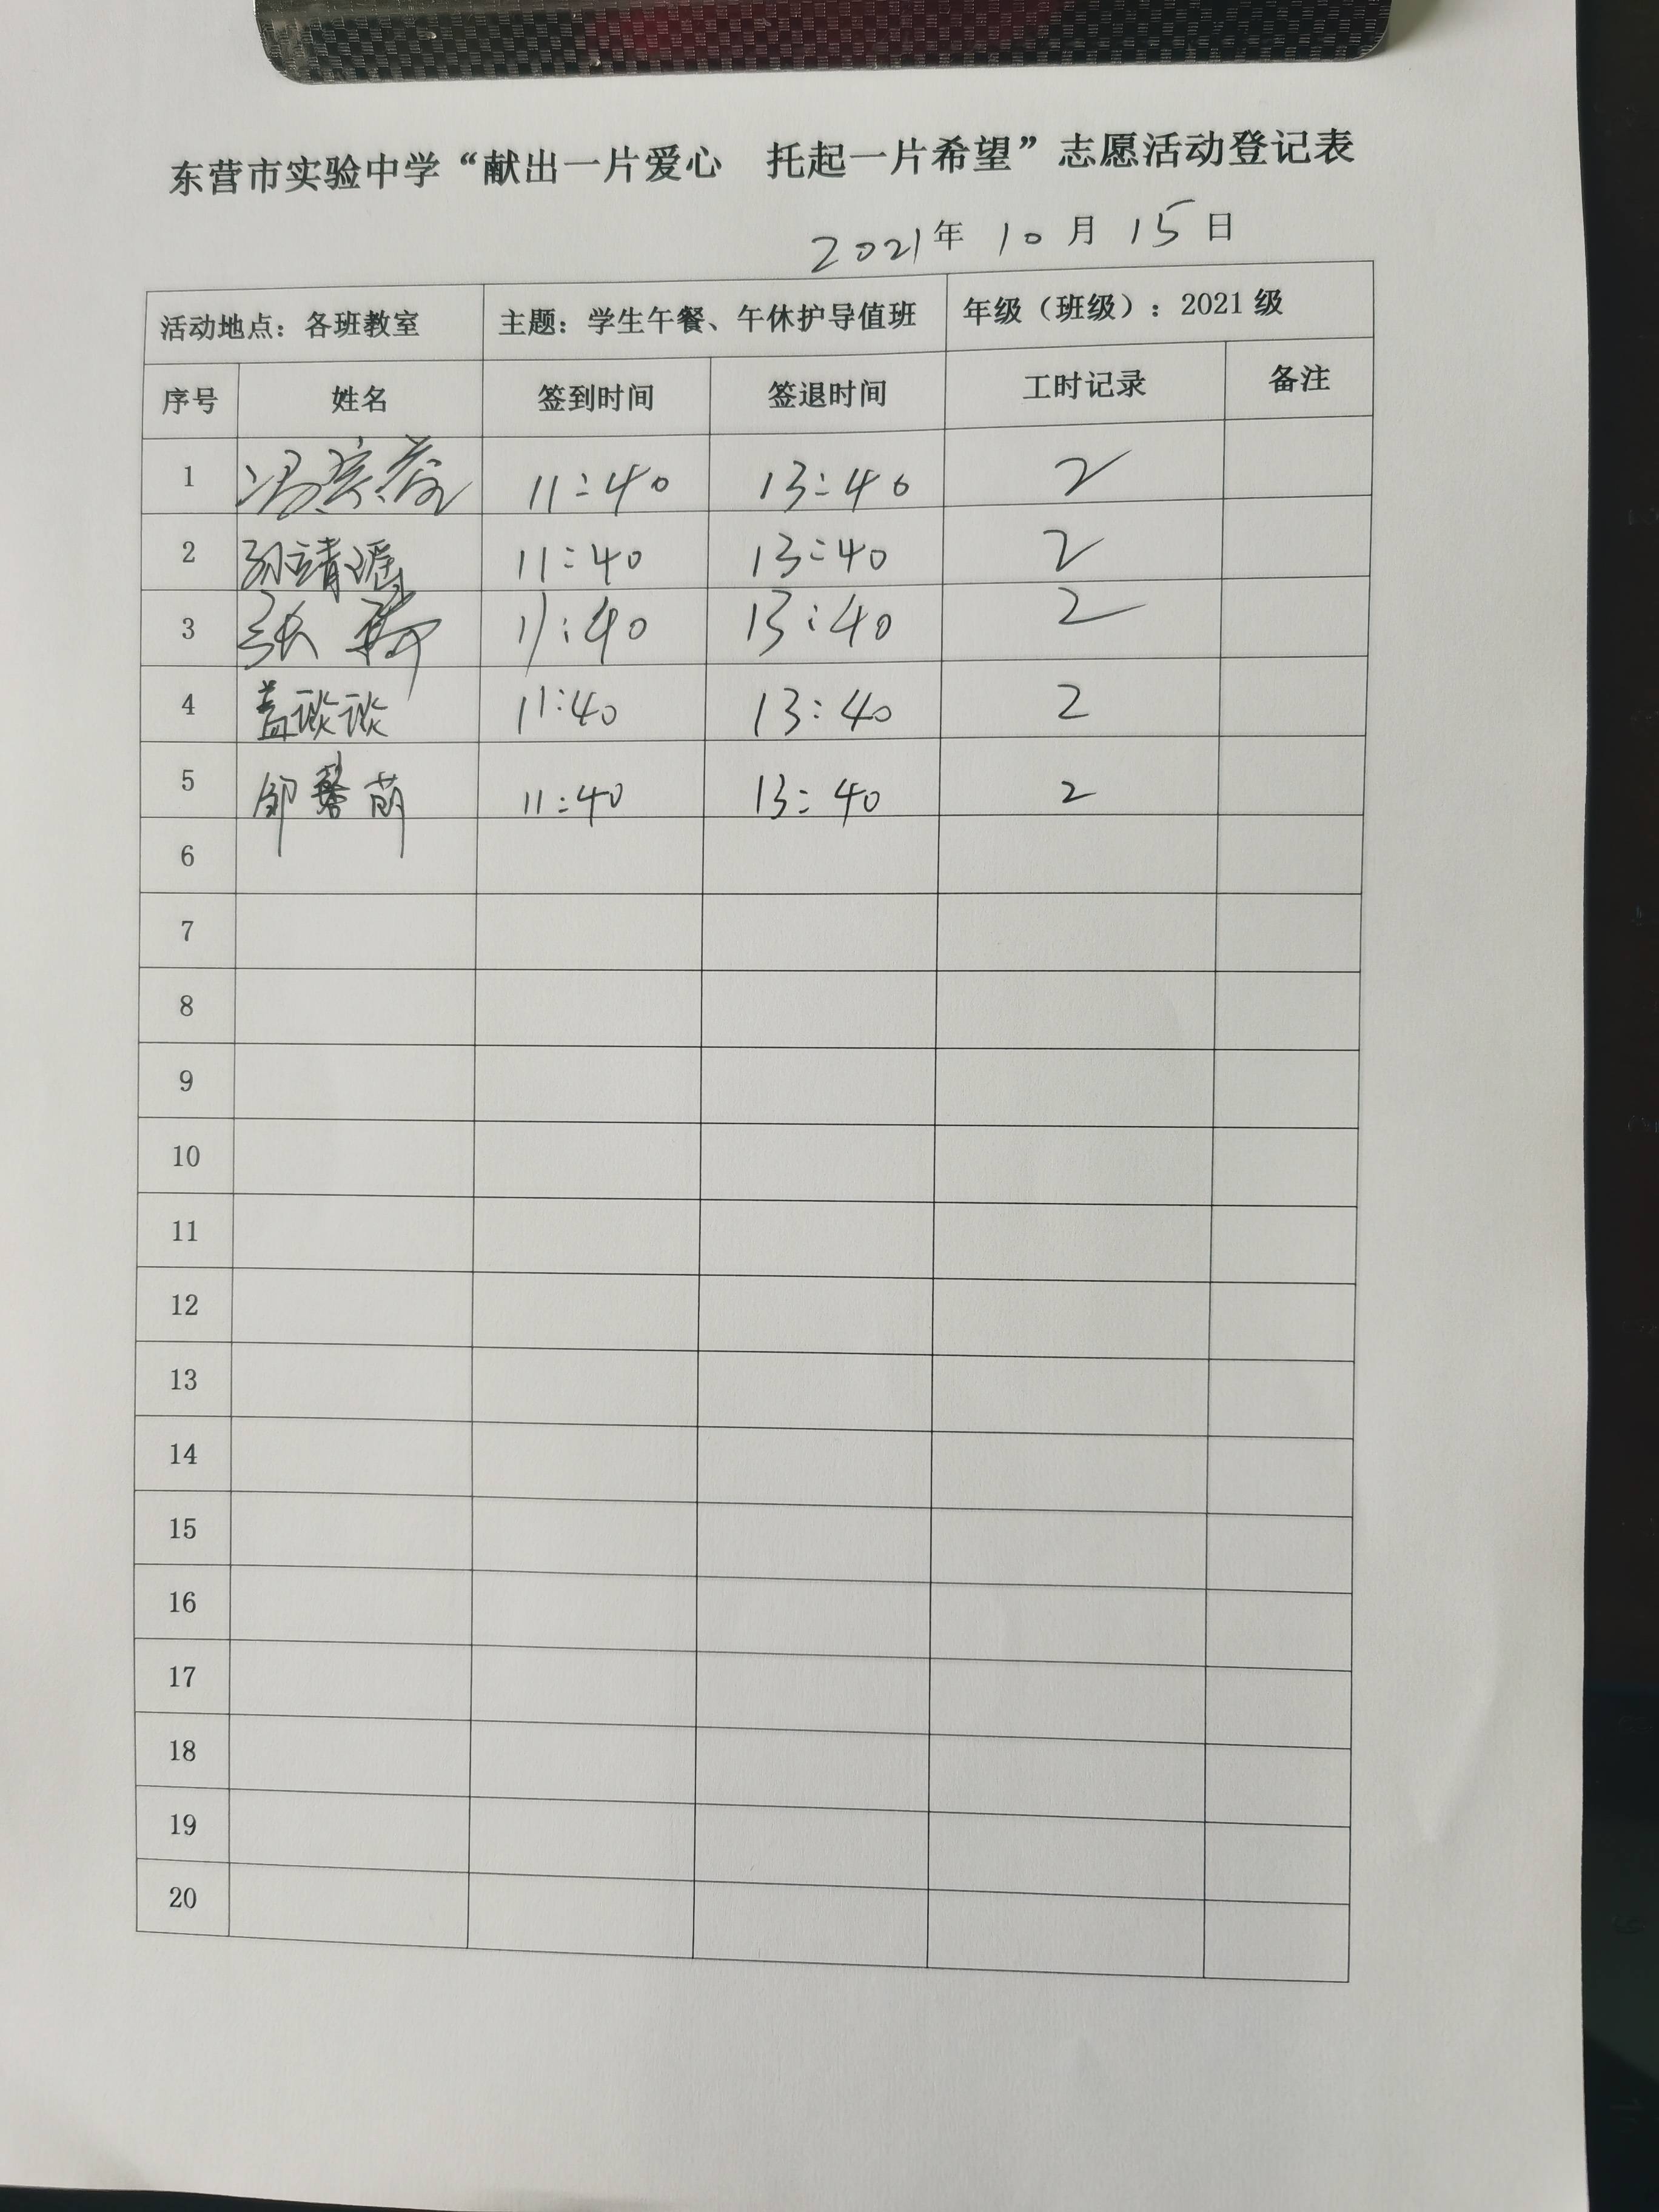 东营市实验中学“献出一片爱心 托起一片希望”志愿活动登记表
2021年 10月 15日
活动地点：各班教室 主题：学生午餐、午休护导值班 年级（班级）：2021级
序号 姓名 签到时间 签退时间 工时记录 备注
1 冯 11:40 13:40 2
2 孙靖瑶 11:40 13:40 2
3 张 11:40 13:40 2
4 盖谈谈 11:40 13:40 2
5 邹馨萌 11:40 13:40 2
6
7
8
9
10
11
12
13
14
15
16
17
18
19
20